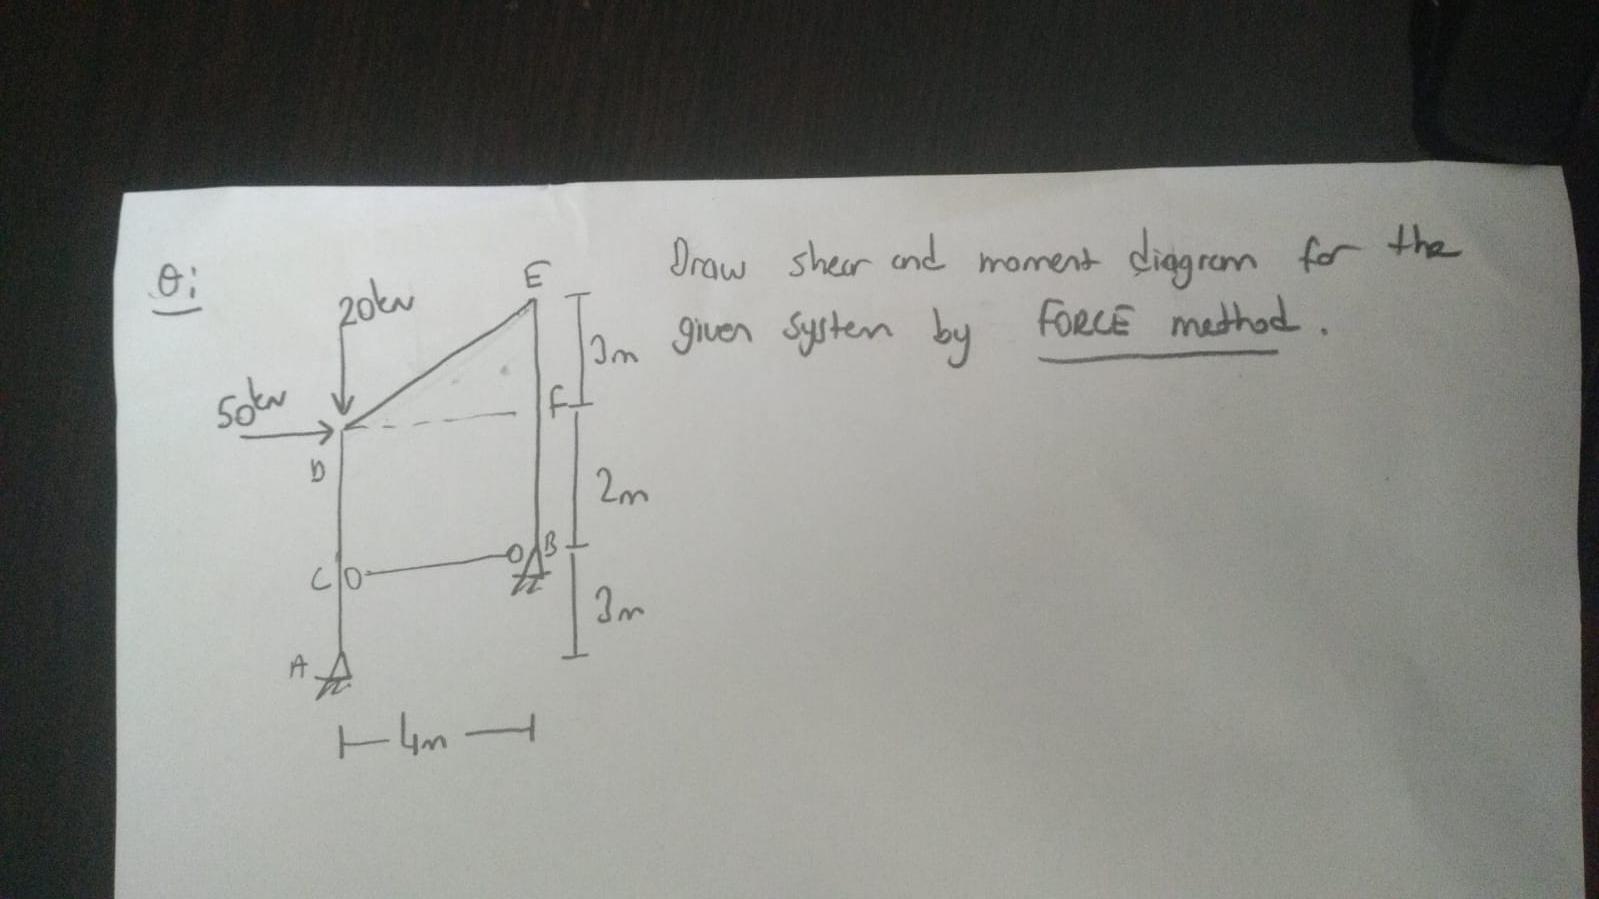 Q:
Draw shear and moment diagram for the
given system by FORCE method.
E
20kN
3m
50kN
F
D
2m
B
C
3m
A
4m